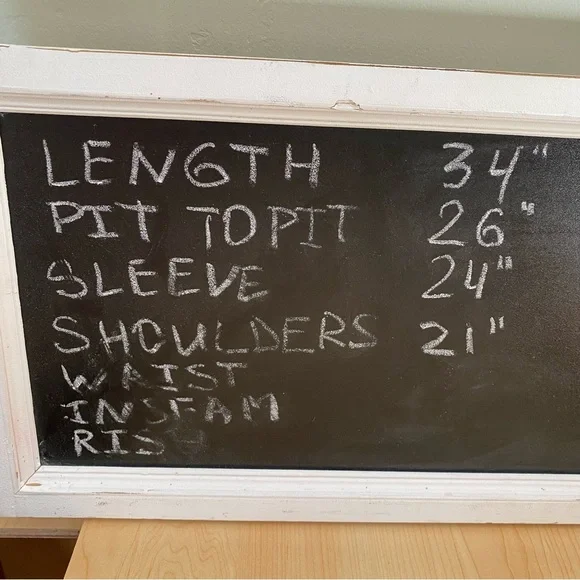 LENGTH 34"
PIT TO PIT 26"
SLEEVE 24"
SHOULDERS 21"
WRIST
INSEAM
RISE